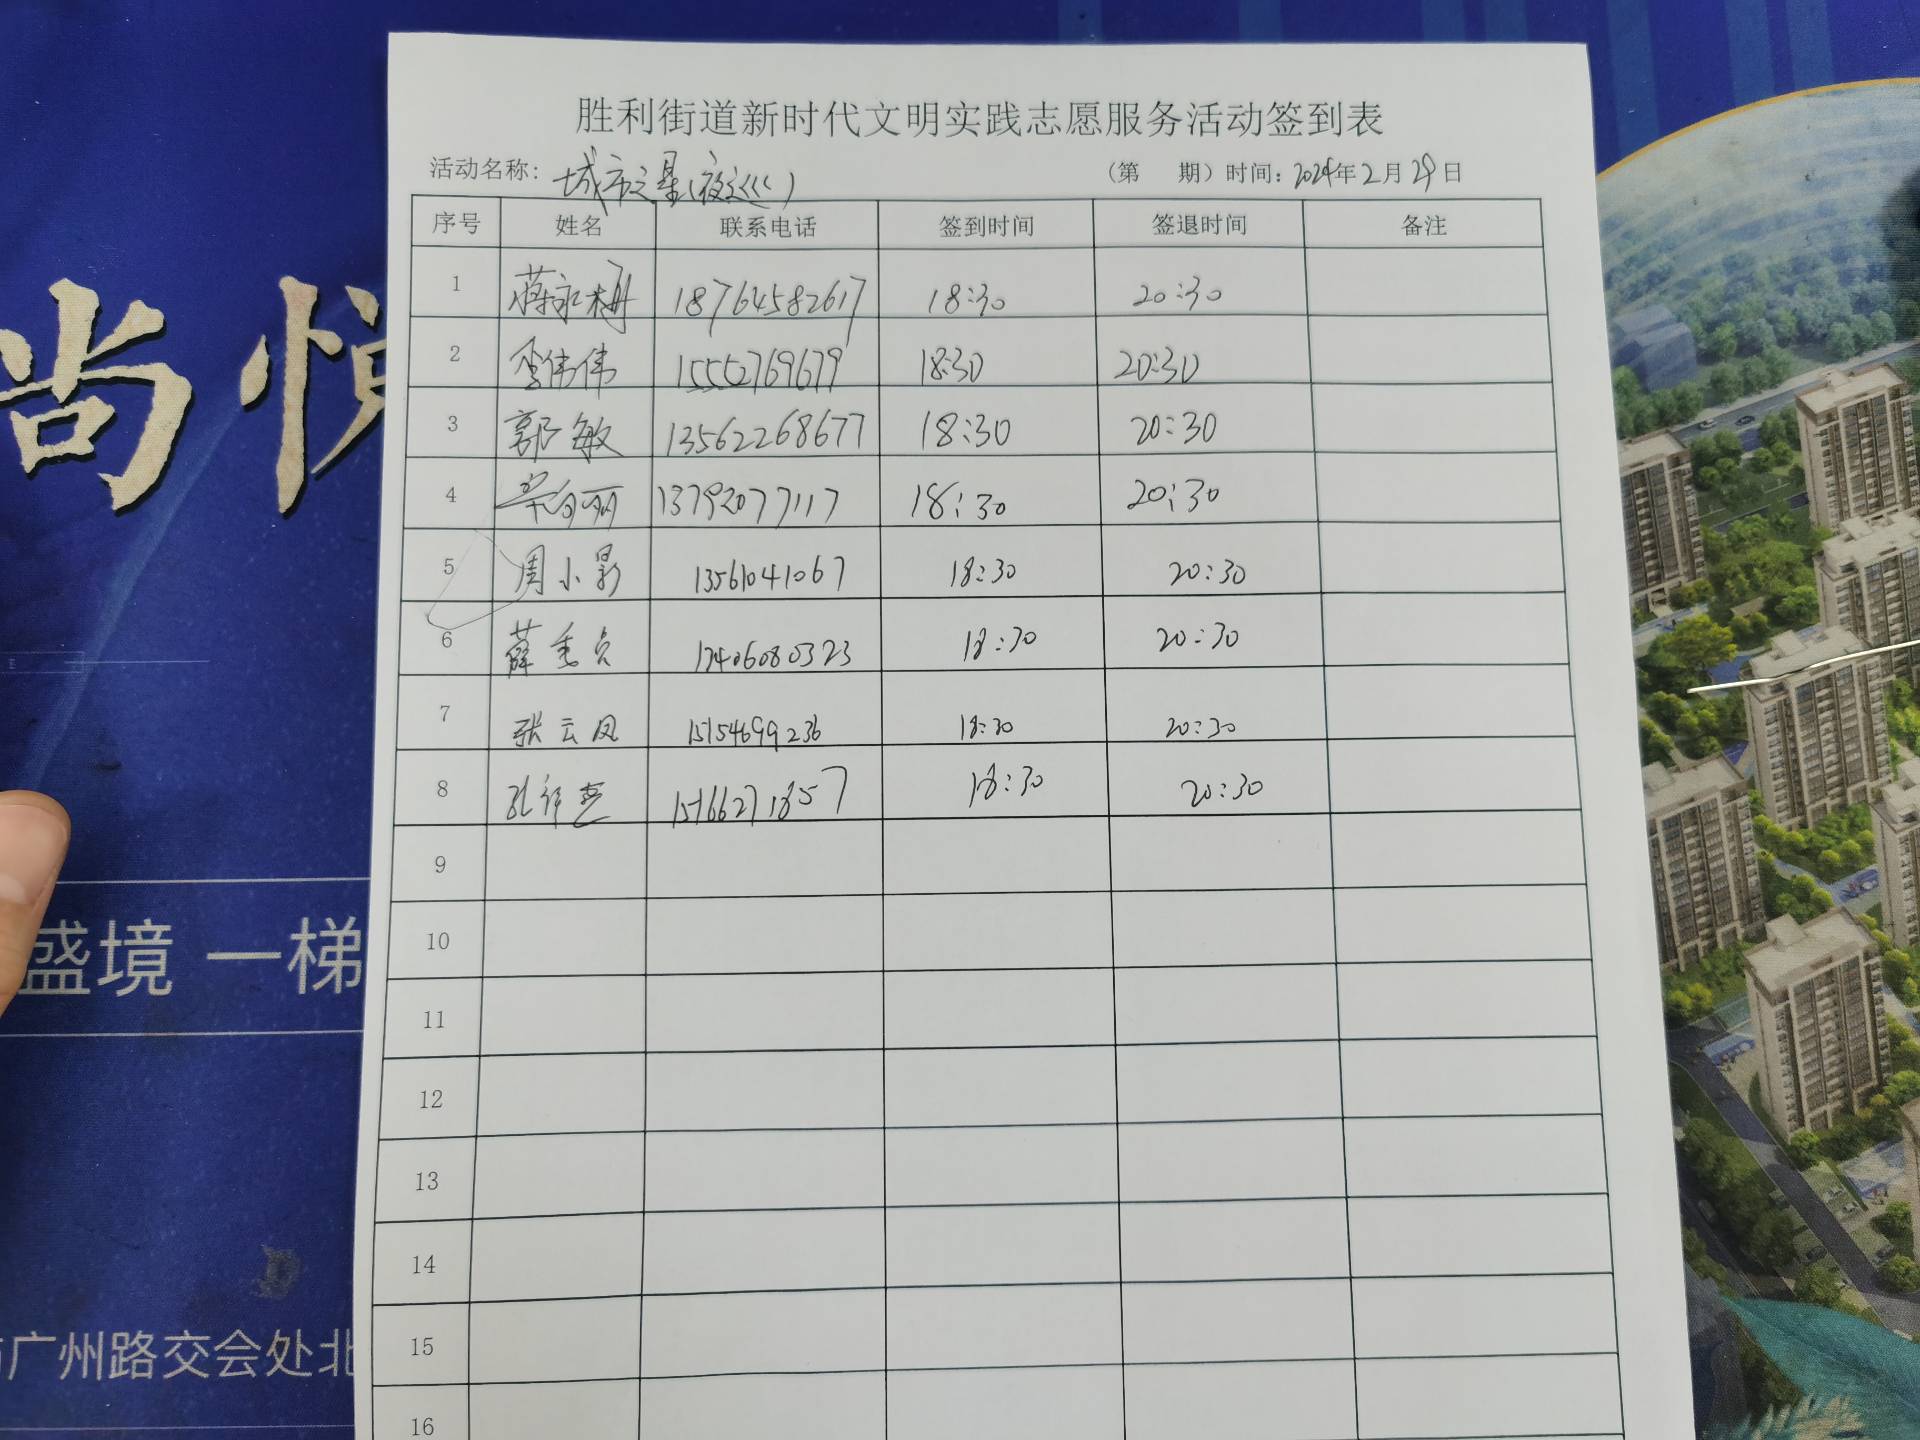 胜利街道新时代文明实践志愿服务活动签到表
活动名称: 城市之星(夜巡) (第 期) 时间: 2024年2月29日
序号 姓名 联系电话 签到时间 签退时间 备注
1 蒋永梅 18764582617 18:30 20:30
2 李伟伟 15552769679 18:30 20:30
3 郭敏 13562268677 18:30 20:30
4 13792077117 18:30 20:30
5 周小影 13561041067 18:30 20:30
6 薛 18:30 20:30
7 张云凤 15154699236 18:30 20:30
8 孔 15166271857 18:30 20:30
9
10
11
12
13
14
15
16
尚悦
盛境 一梯
广州路交会处北